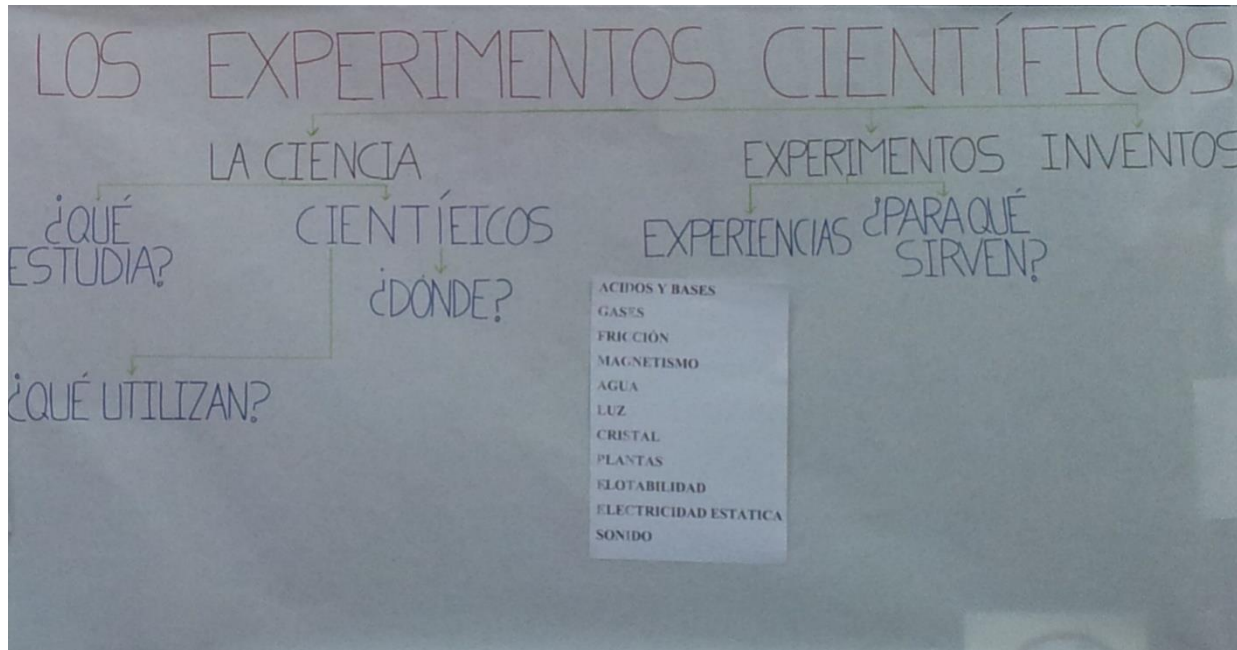 LOS EXPERIMENTOS CIENTÍFICOS
LA CIENCIA
EXPERIMENTOS
INVENTOS
¿QUÉ
ESTUDIA?
CIENTÍFICOS
EXPERIENCIAS
¿PARA QUÉ
SIRVEN?
¿DÓNDE?
¿QUÉ UTILIZAN?
ACIDOS Y BASES
GASES
FRICCIÓN
MAGNETISMO
AGUA
LUZ
CRISTAL
PLANTAS
FLOTABILIDAD
ELECTRICIDAD ESTATICA
SONIDO